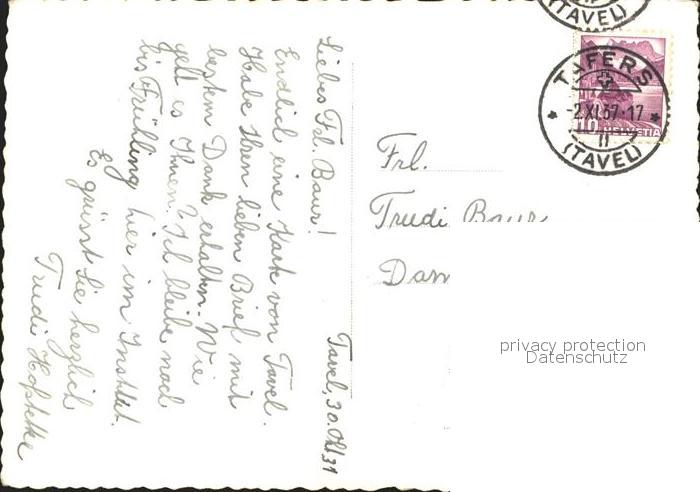 Tavel, 30. Okt 37
Liebes Frl. Baur!
Endlich eine Karte von Tavel.
Habe Ihren lieben Brief mit
bestem Dank erhalten. Wie
geht es Ihnen? Ich bleibe noch
bis Frühling hier im Institut.
Es grüsst Sie herzlich
Trudi Hofstetter
(TAVEL)
TAFERS
-2.XI.37-17
(TAVEL)
10 HELVETIA
Frl.
Trudi Baur
privacy protection
Datenschutz